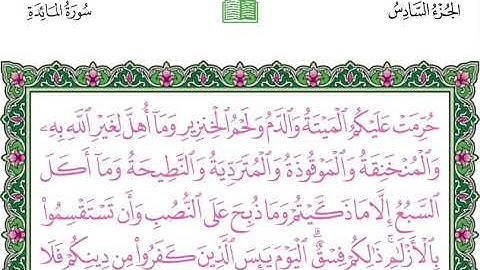 الجُزْءُ السَّادِسُ
سُورَةُ المَائِدَةِ
حُرِّمَتْ عَلَيْكُمُ ٱلْمَيْتَةُ وَٱلدَّمُ وَلَحْمُ ٱلْخِنزِيرِ وَمَآ أُهِلَّ لِغَيْرِ ٱللَّهِ بِهِۦ
وَٱلْمُنْخَنِقَةُ وَٱلْمَوْقُوذَةُ وَٱلْمُتَرَدِّيَةُ وَٱلنَّطِيحَةُ وَمَآ أَكَلَ
ٱلسَّبُعُ إِلَّا مَا ذَكَّيْتُمْ وَمَا ذُبِحَ عَلَى ٱلنُّصُبِ وَأَن تَسْتَقْسِمُوا۟
بِٱلْأَزْلَٰمِ ۚ ذَٰلِكُمْ فِسْقٌ ۗ ٱلْيَوْمَ يَئِسَ ٱلَّذِينَ كَفَرُوا۟ مِن دِينِكُمْ فَلَا